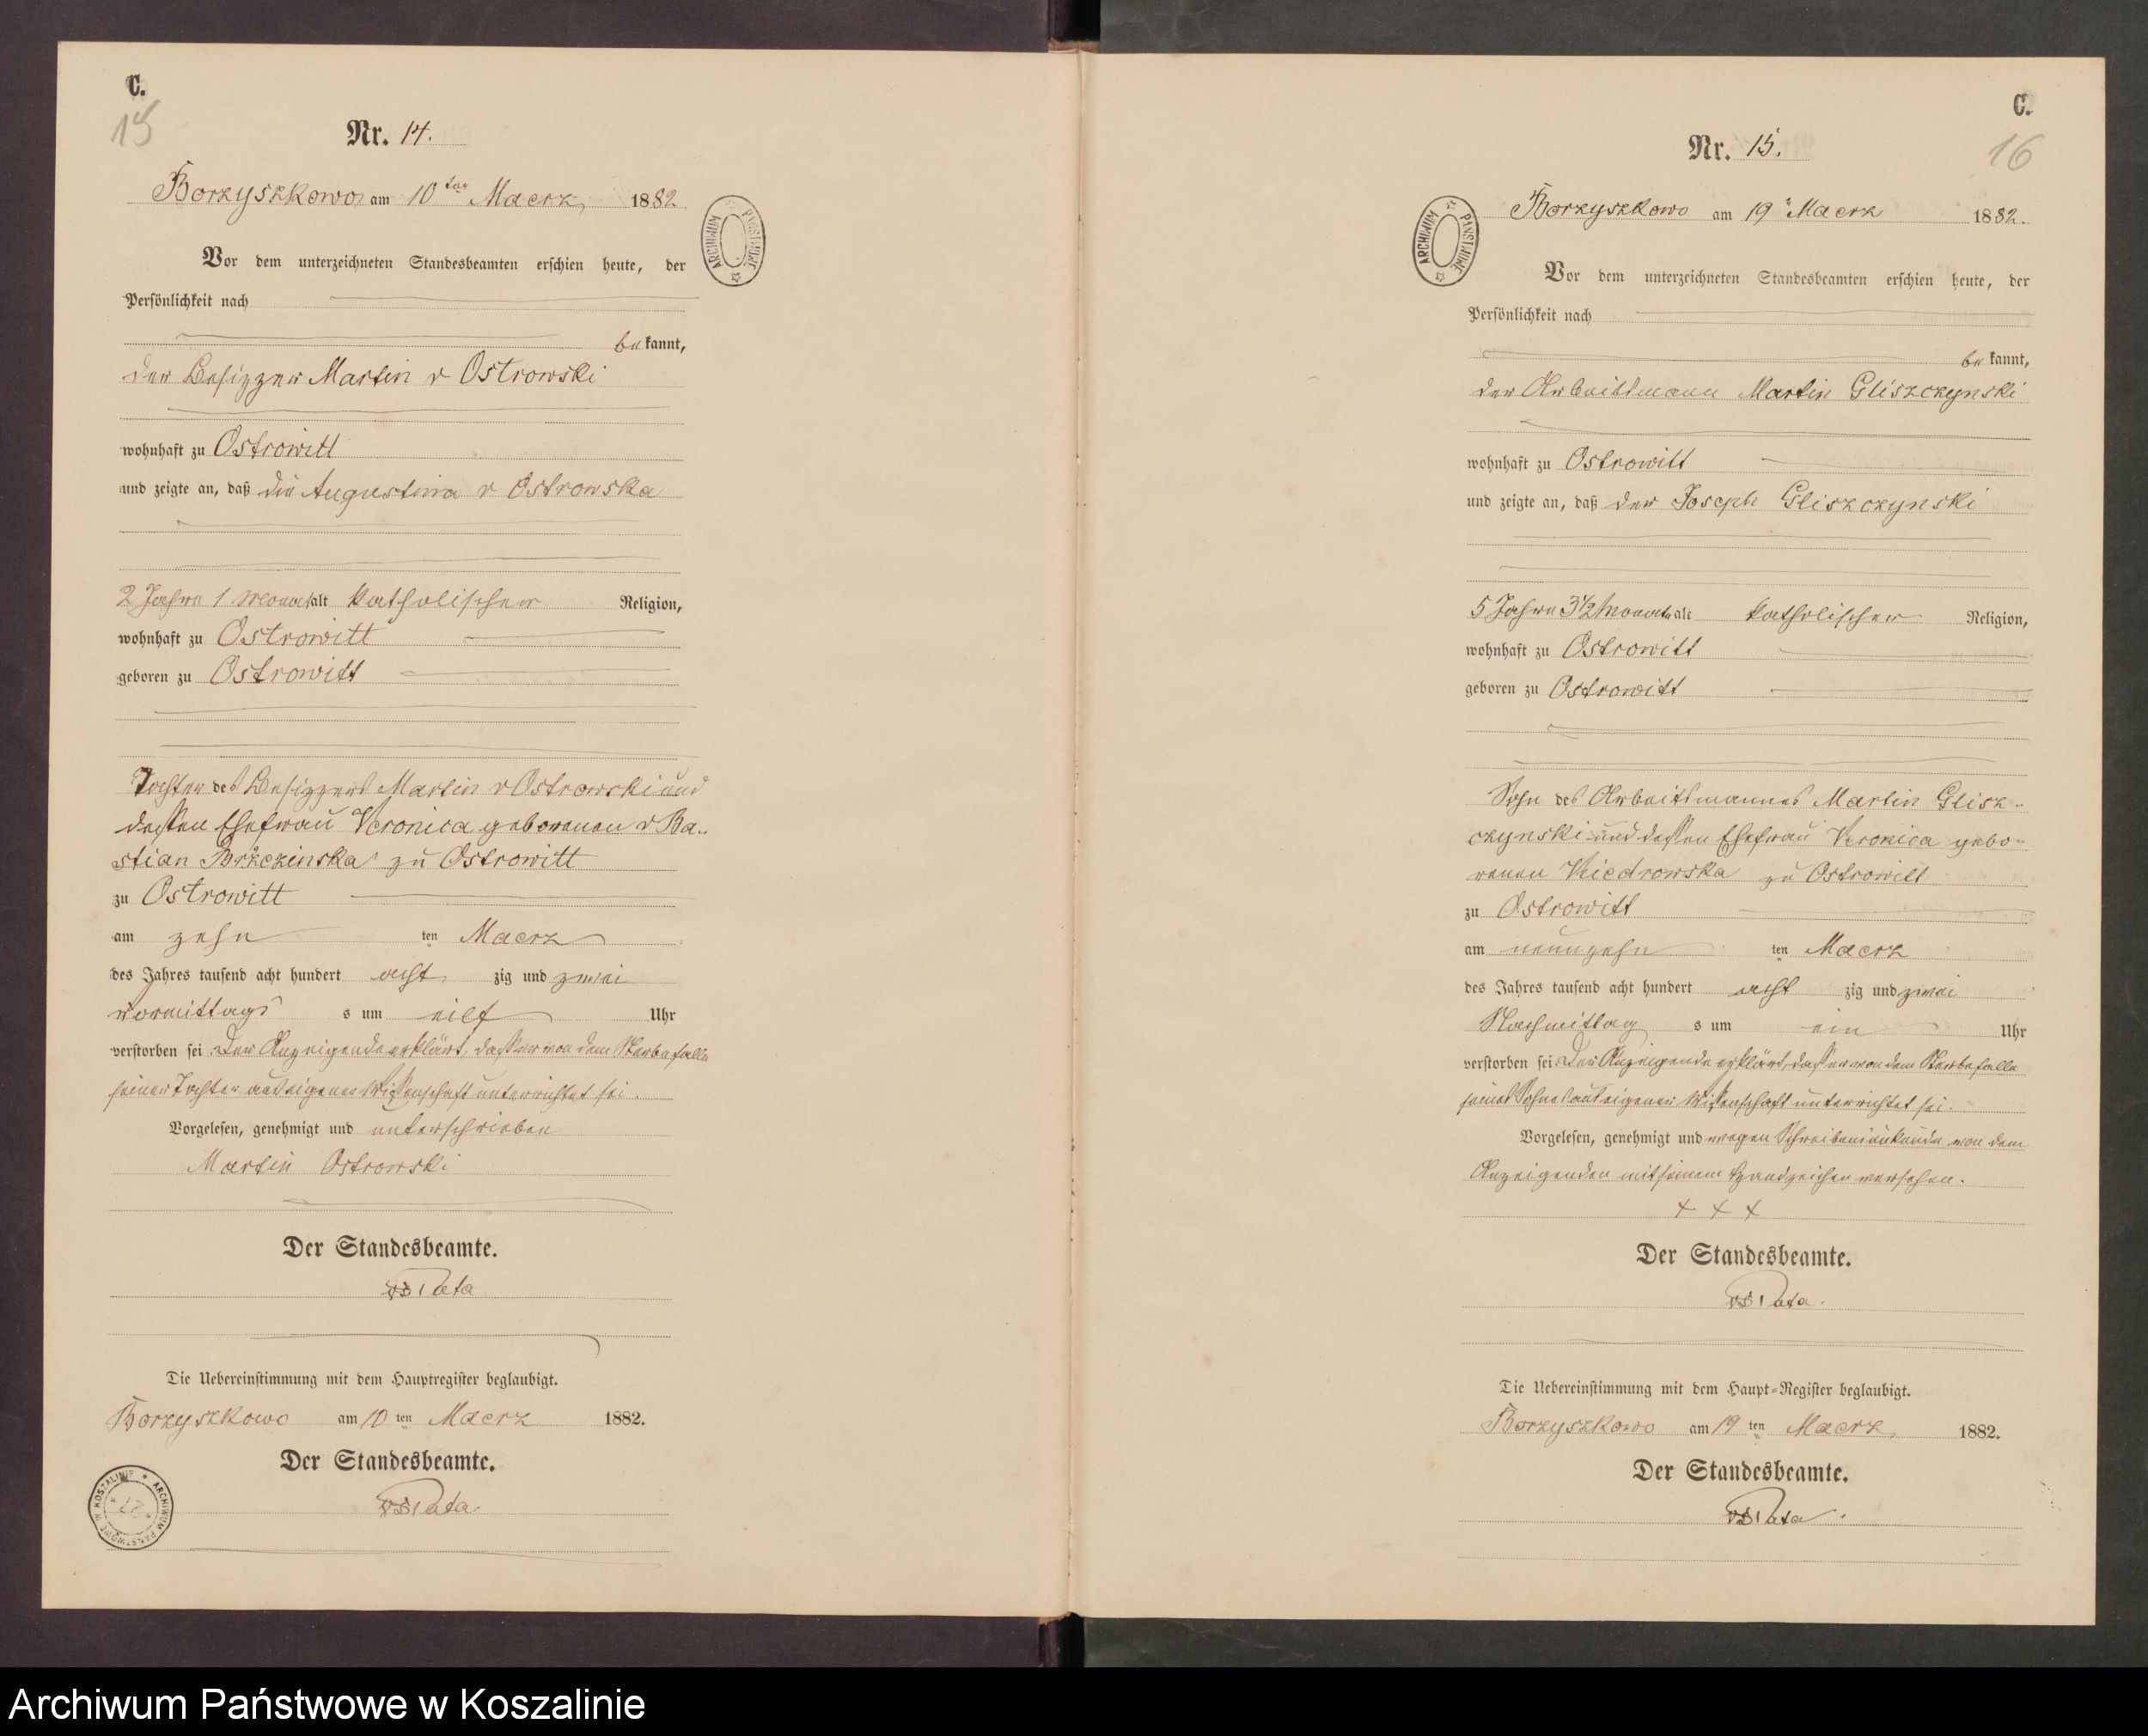 C.
15
Nr. 14.
Borzyszkowo am 10ten Maerz 1882
Vor dem unterzeichneten Standesbeamten erschien heute, der
Persönlichkeit nach
bekannt,
der Besizzer Martin v Ostrowski
wohnhaft zu Ostrowitt
und zeigte an, daß die Augustina v Ostrowska
2 Jahre 1 Monat alt katholischer Religion,
wohnhaft zu Ostrowitt
geboren zu Ostrowitt
Tochter des Besizzers Martin v Ostrowski und
dessen Ehefrau Veronica geborenen v Ba-
stian zu Ostrowitt
zu Ostrowitt
am zehn ten Maerz
des Jahres tausend acht hundert acht zig und zwei
vormittags s um eilf Uhr
verstorben sei Der Anzeigende erklärt, dass er von dem Sterbefalle
seiner Tochter aus eigener Wissenschaft unterrichtet sei.
Vorgelesen, genehmigt und unterschrieben
Martin Ostrowski
Der Standesbeamte.
Die Uebereinstimmung mit dem Hauptregister beglaubigt.
Borzyszkowo am 10 ten Maerz 1882.
Der Standesbeamte.
ARCHIWUM PAŃSTWOWE
ARCHIWUM PAŃSTWOWE W KOSZALINIE
C.
16
Nr. 15.
Borzyszkowo am 19 Maerz 1882.
Vor dem unterzeichneten Standesbeamten erschien heute, der
Persönlichkeit nach
bekannt,
der Arbeitsmann Martin Gliszczynski
wohnhaft zu Ostrowitt
und zeigte an, daß der Joseph Gliszczynski
5 Jahre 3½ Monate alt katholischer Religion,
wohnhaft zu Ostrowitt
geboren zu Ostrowitt
Sohn des Arbeitsmannes Martin Glisz-
czynski und dessen Ehefrau Veronica gebo-
renen Kiedrowska zu Ostrowitt
zu Ostrowitt
am neunzehn ten Maerz
des Jahres tausend acht hundert acht zig und zwei
Nachmittag s um ein Uhr
verstorben sei Der Anzeigende erklärt, dass er von dem Sterbefalle
seines Sohnes aus eigener Wissenschaft unterrichtet sei.
Vorgelesen, genehmigt und wegen Schreibensunkunde von dem
Anzeigenden mit seinem Handzeichen versehen.
+ + +
Der Standesbeamte.
Die Uebereinstimmung mit dem Haupt-Register beglaubigt.
Borzyszkowo am 19 ten Maerz 1882.
Der Standesbeamte.
ARCHIWUM PAŃSTWOWE
Archiwum Państwowe w Koszalinie